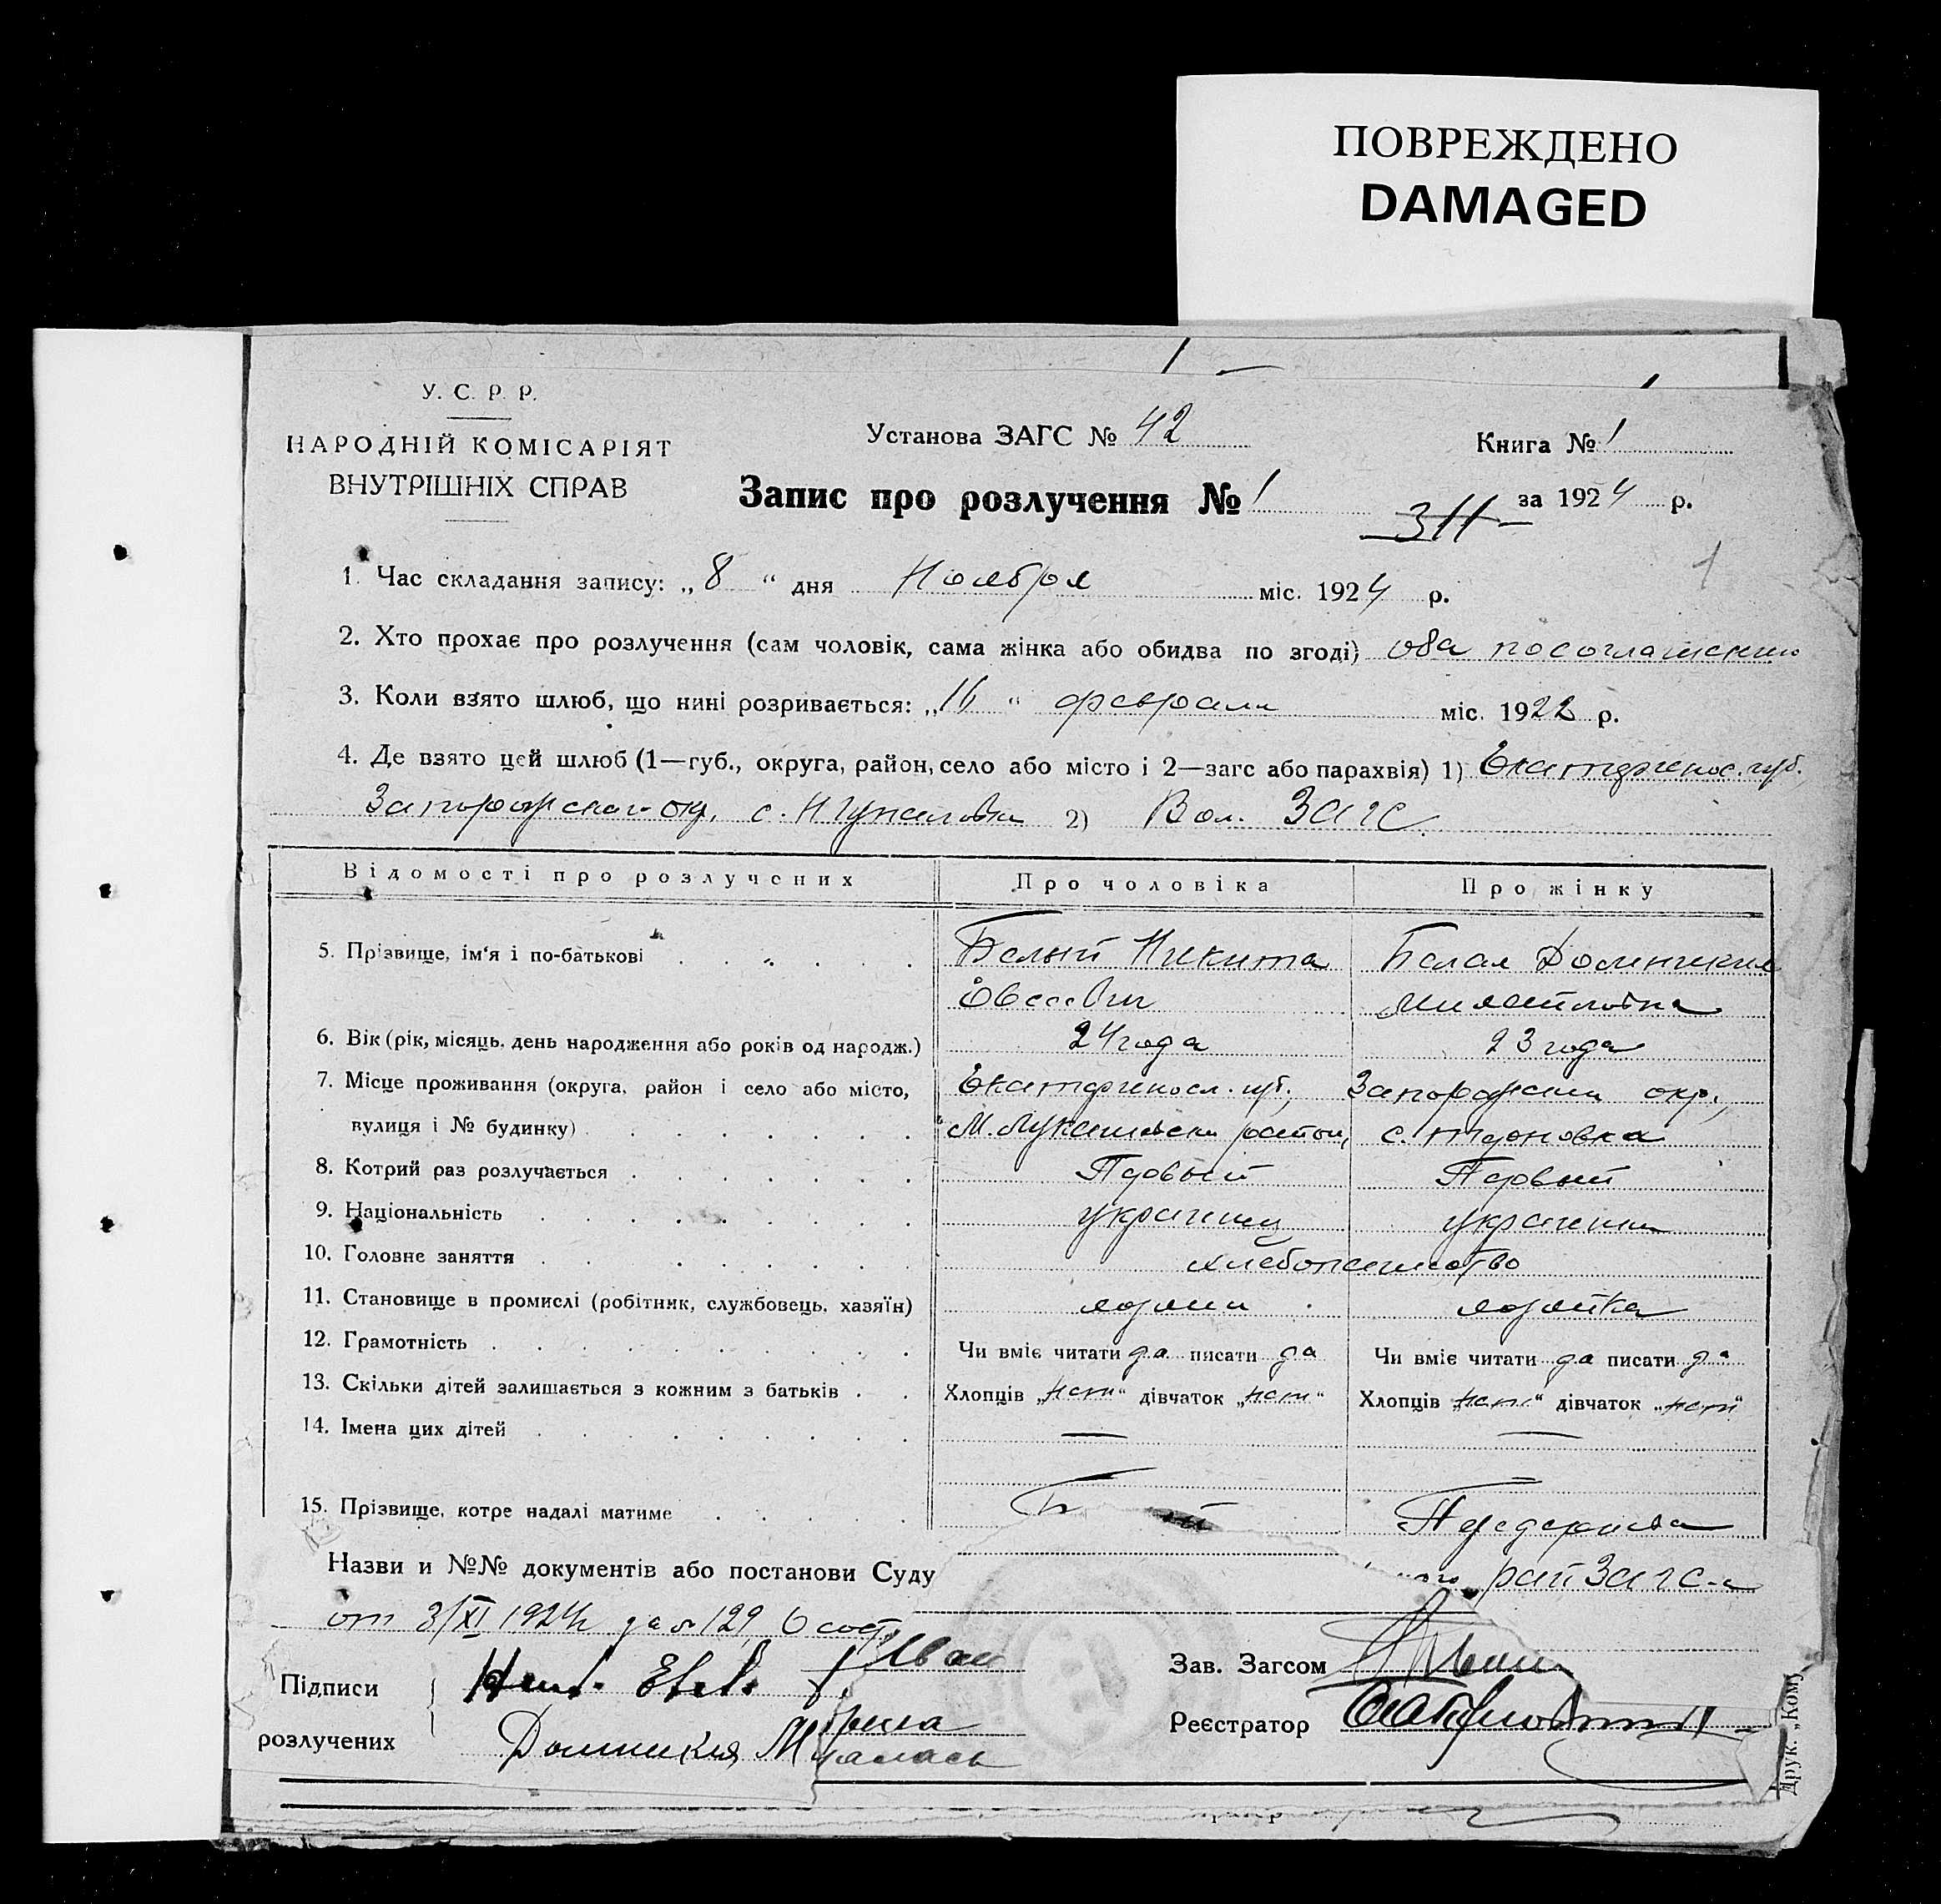 ПОВРЕЖДЕНО
DAMAGED
У. С. Р. Р.
НАРОДНІЙ КОМІСАРІЯТ
ВНУТРІШНІХ СПРАВ
Установа ЗАГС № 42
Книга № 1
Запис про розлучення № 1
за 1924 р.
311
1
1. Час складання запису: „8“ дня Ноября міс. 1924 р.
2. Хто прохає про розлучення (сам чоловік, сама жінка або обидва по згоді) оба по соглашению
3. Коли взято шлюб, що нині розривається: „16“ февраля міс. 1922 р.
4. Де взято цей шлюб (1—губ., округа, район, село або місто і 2—загс або парахвія) 1) Екатеринос. губ.
Запорожского окр. с. 2) Вол. Загс.
Відомості про розлучених
Про чоловіка
Про жінку
5. Прізвище, ім'я і по-батькові
Белый Никита
Белая Домникия
6. Вік (рік, місяць, день народження або років од народж.)
24 года
23 года
7. Місце проживання (округа, район і село або місто,
Екатериносл. губ., Запорожский окр.,
вулиця і № будинку)
М. Лукашевский район, с.
8. Котрий раз розлучається
Первый
Первый
9. Національність
украинец
украинка
10. Головне заняття
хлебопашество
11. Становище в промислі (робітник, службовець, хазяїн)
хозяин
хозяйка
12. Грамотність
Чи вміє читати да писати да
Чи вміє читати да писати да
13. Скільки дітей залишається з кожним з батьків
Хлопців „нет“ дівчаток „нет“
Хлопців „нет“ дівчаток „нет“
14. Імена цих дітей
15. Прізвище, котре надалі матиме
Назви и №№ документів або постанови Суду
рай Загса
от 3/XI 1924 г. за № 129
Підписи
розлучених
Домникия
Зав. Загсом
Реєстратор
Друк. „Ком